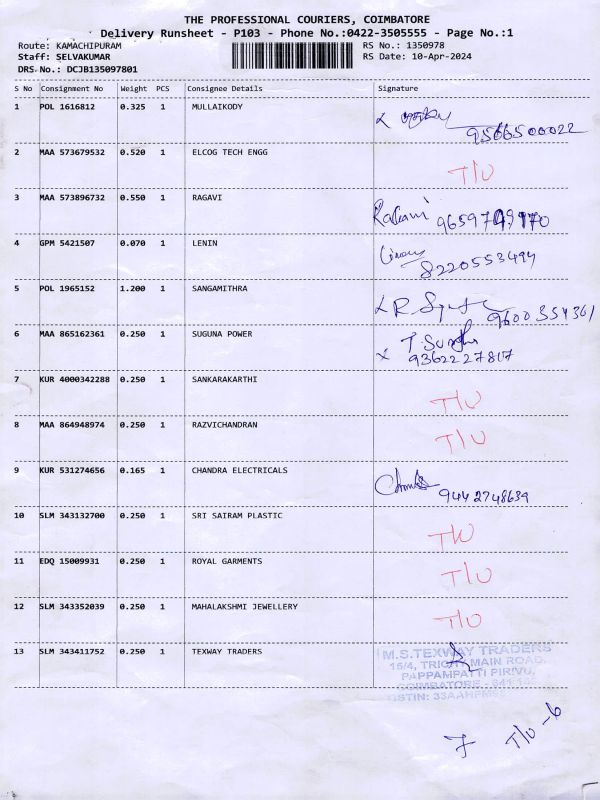 THE PROFESSIONAL COURIERS, COIMBATORE
Delivery Runsheet - P103 - Phone No.:0422-3505555 - Page No.:1
Route: KAMACHIPURAM RS No.: 1350978
Staff: SELVAKUMAR RS Date: 10-Apr-2024
DRS No.: DCJB135097801
S No Consignment No Weight PCS Consignee Details Signature
1 POL 1616812 0.325 1 MULLAIKODY
9566500022
2 MAA 573679532 0.520 1 ELCOG TECH ENGG T/U
3 MAA 573896732 0.550 1 RAGAVI
Ragavi
4 GPM 5421507 0.070 1 LENIN
8220553494
5 POL 1965152 1.200 1 SANGAMITHRA
9600354361
6 MAA 865162361 0.250 1 SUGUNA POWER
9362227817
7 KUR 4000342288 0.250 1 SANKARAKARTHI T/U
8 MAA 864948974 0.250 1 RAZVICHANDRAN T/U
9 KUR 531274656 0.165 1 CHANDRA ELECTRICALS
9442748639
10 SLM 343132700 0.250 1 SRI SAIRAM PLASTIC T/U
11 EDQ 15009931 0.250 1 ROYAL GARMENTS T/U
12 SLM 343352039 0.250 1 MAHALAKSHMI JEWELLERY T/U
13 SLM 343411752 0.250 1 TEXWAY TRADERS M.S.TEXWAY TRADERS
16/4, MAIN ROAD,
PAPPAMPATTI PIRIVU,
COIMBATORE - 641
GSTIN:
7 T/U -6